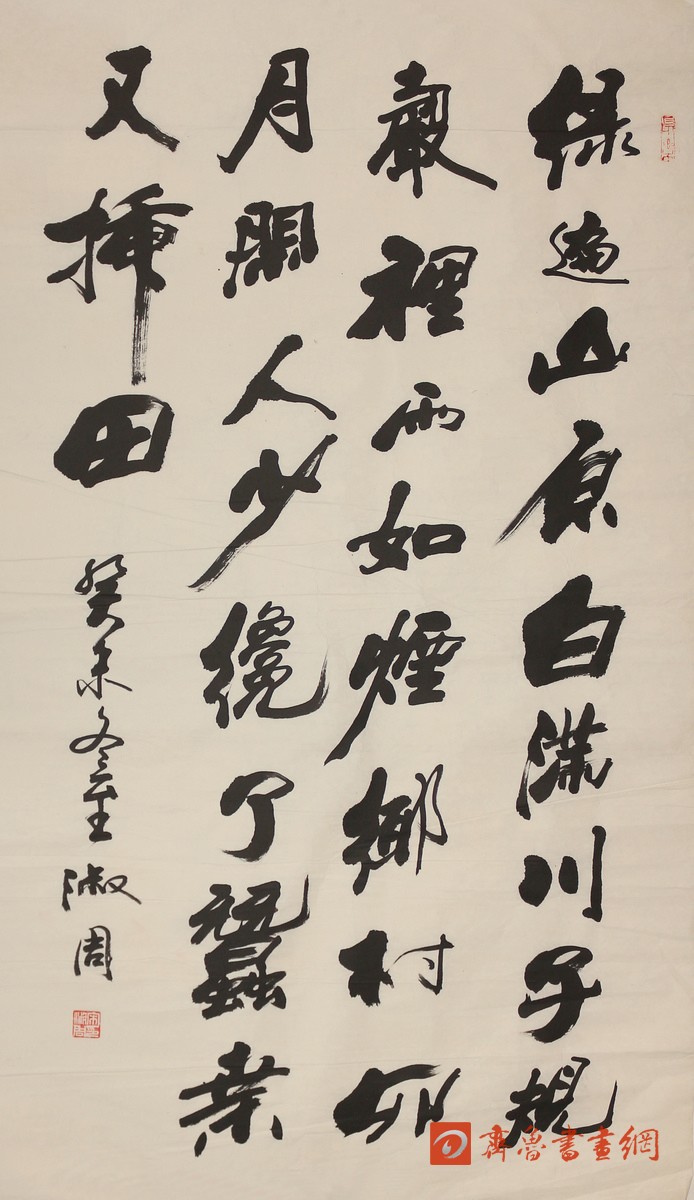 緑遍山原白滿川子規
聲裡雨如煙鄉村四
月閑人少纔了蠶桑
又插田
癸未冬至淑周
齊魯書畫網